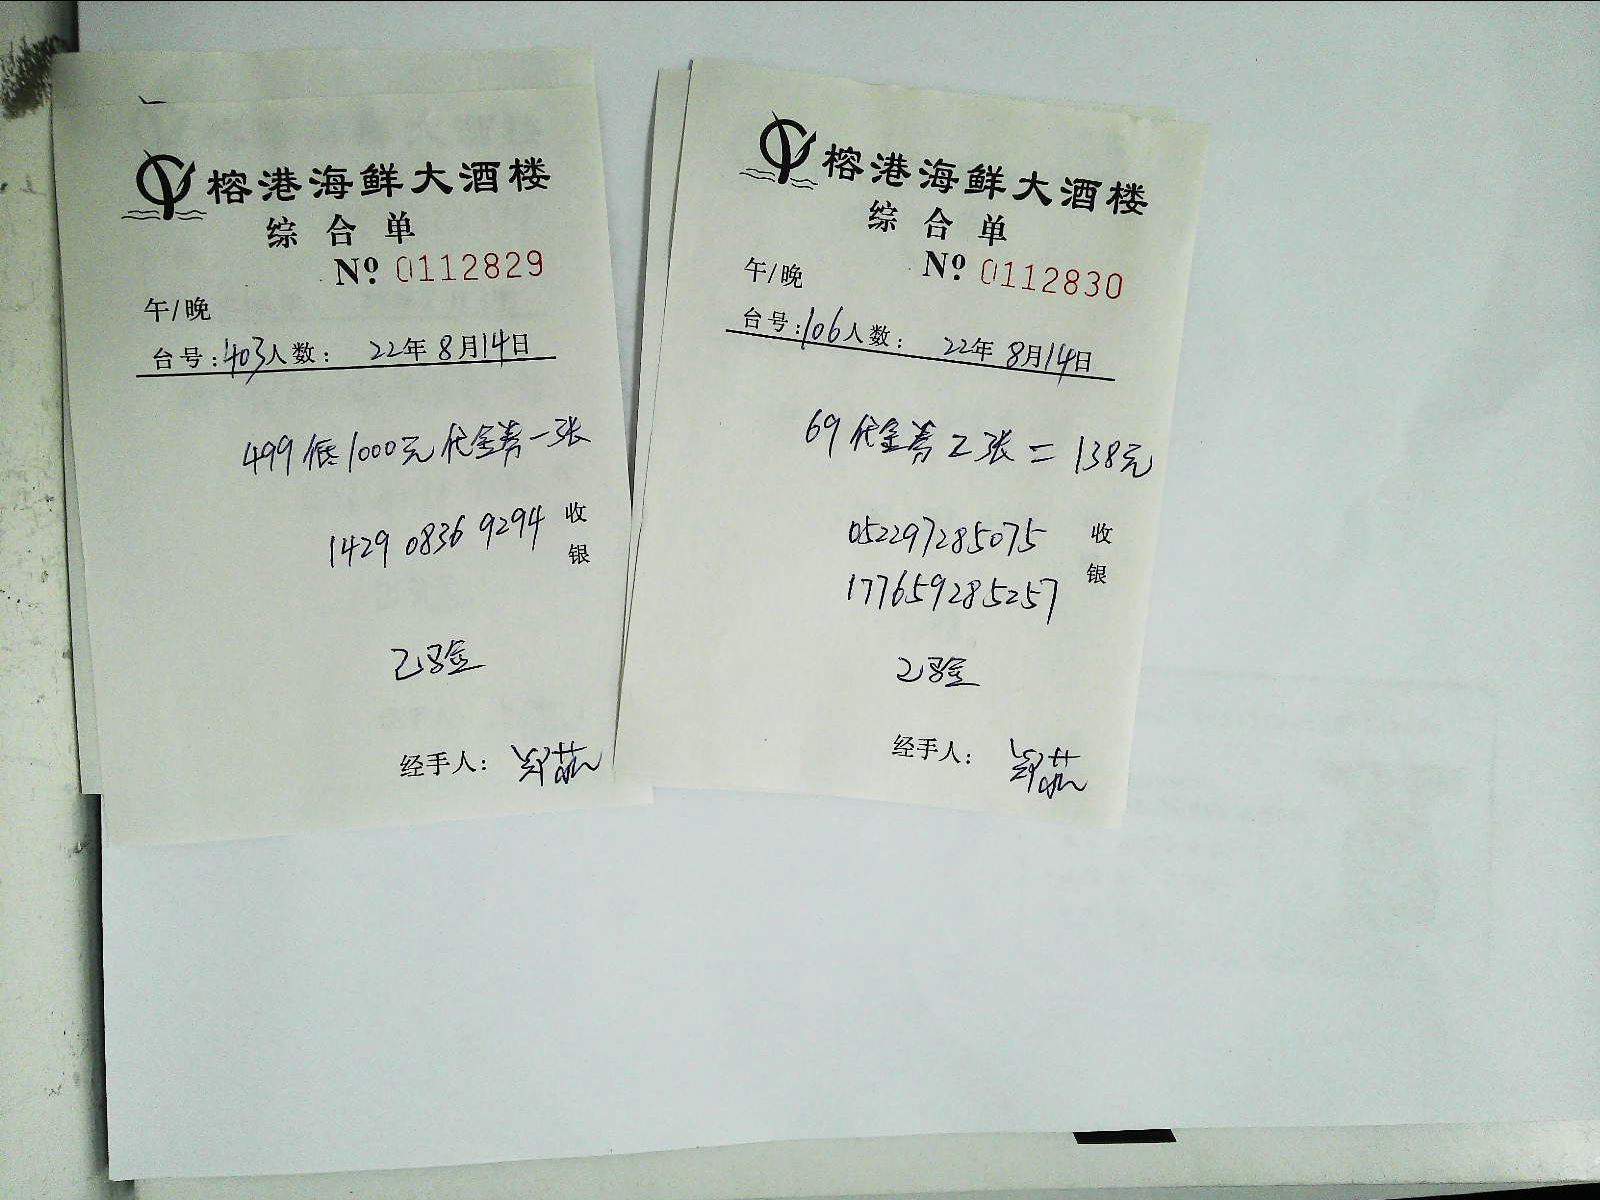 榕港海鲜大酒楼
综合单
Nº 0112829
午/晚
台号:403人数: 22年8月14日
499低1000元代金券一张
1429 0836 9294
收银
已验
经手人:
榕港海鲜大酒楼
综合单
Nº 0112830
午/晚
台号:106人数: 22年8月14日
69代金券2张=138元
052297285075
177659285257
收银
已验
经手人: